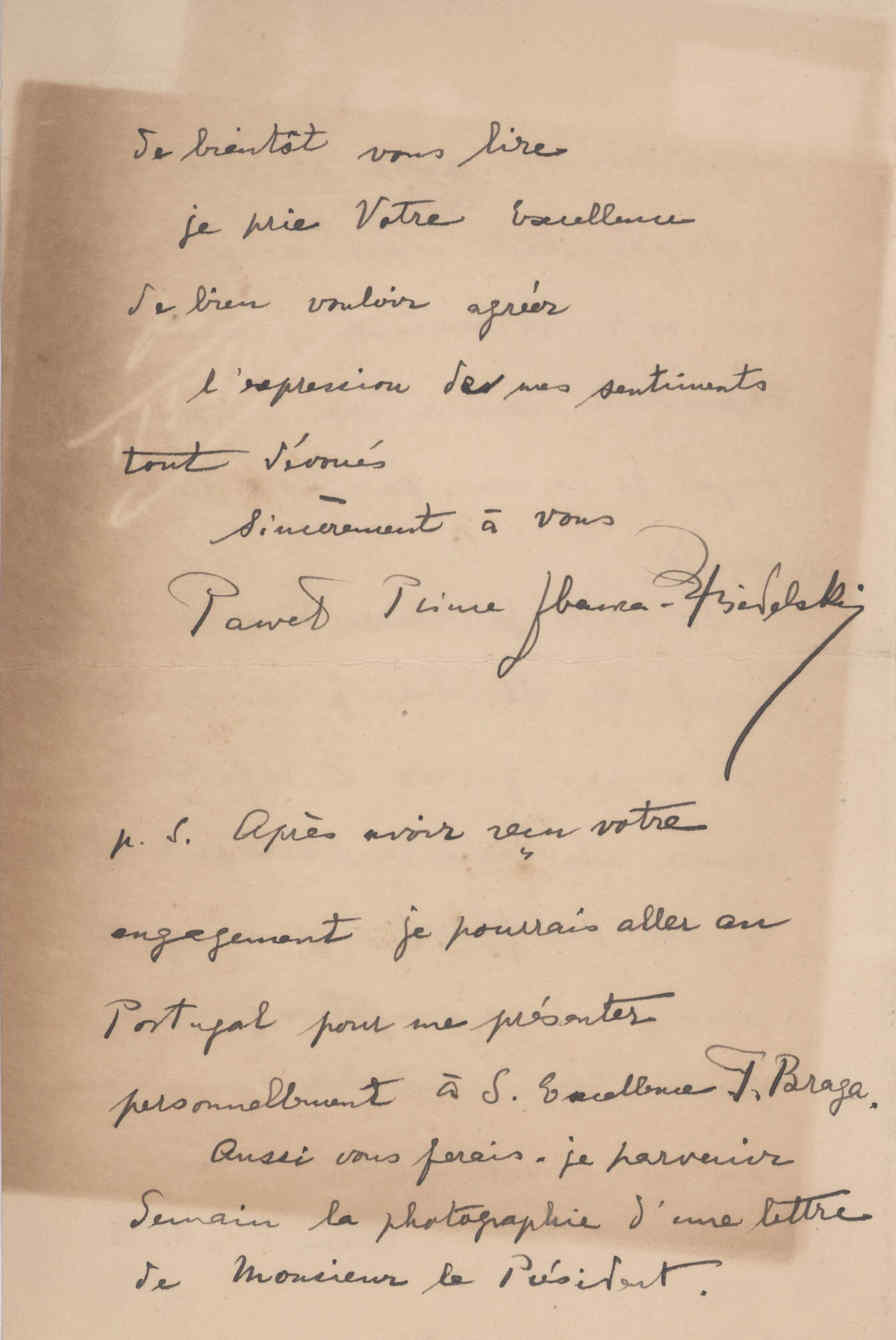 de bientôt vous lire
je prie Votre Excellence
de bien vouloir agréer
l'expression de mes sentiments
tout dévoués
sincèrement à vous
Paweł Prince
p. S. Après avoir reçu votre
engagement je pourrais aller au
Portugal pour me présenter
personnellement à S. Excellence T. Braga.
Aussi vous ferais-je parvenir
demain la photographie d'une lettre
de Monsieur le Président.